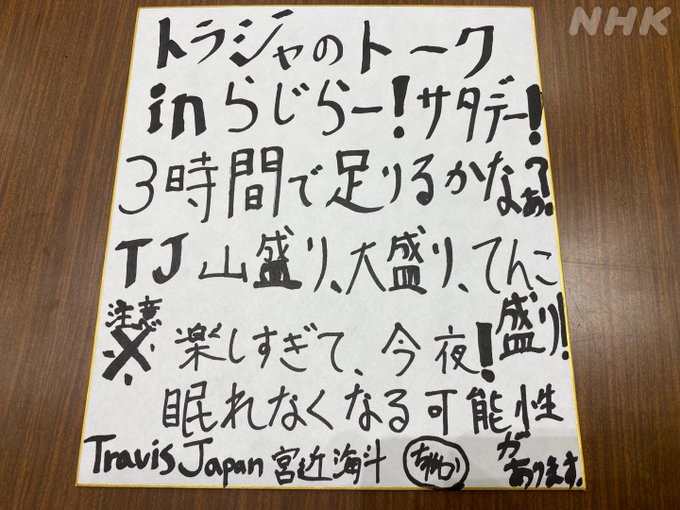 NHK
トラジャのトーク
inらじらー!サタデー!
3時間で足りるかなぁ?
TJ山盛り、大盛り、てんこ
盛り!
注意
※楽しすぎて、今夜!
眠れなくなる可能性
があります。
Travis Japan 宮近海斗 ちゃか